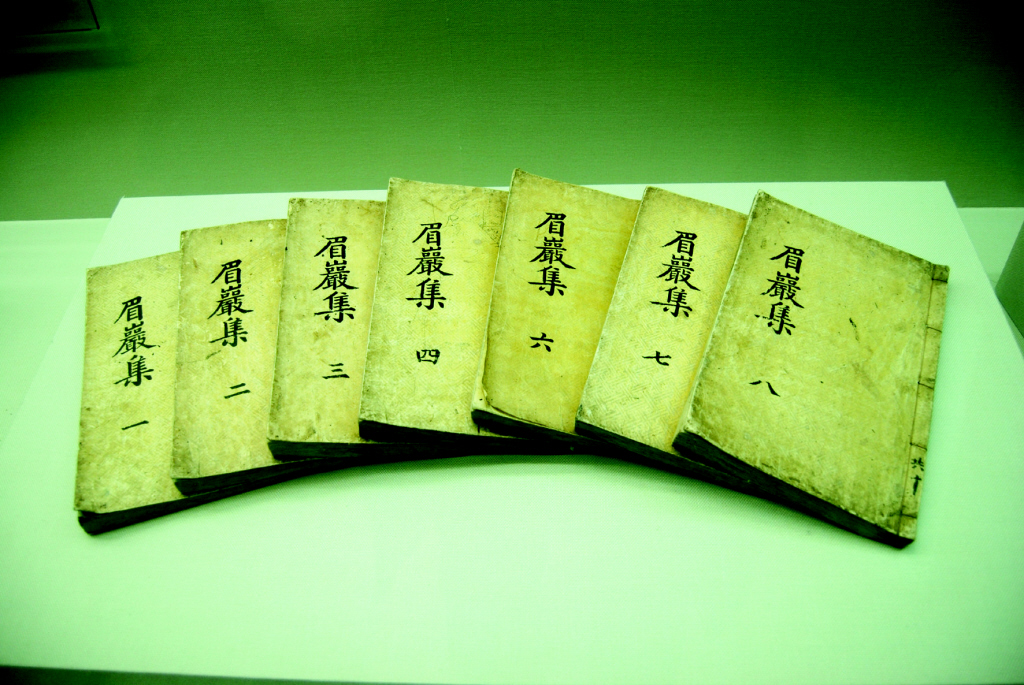 眉巖集 一
眉巖集 二
眉巖集 三
眉巖集 四
眉巖集 六
眉巖集 七
眉巖集 八